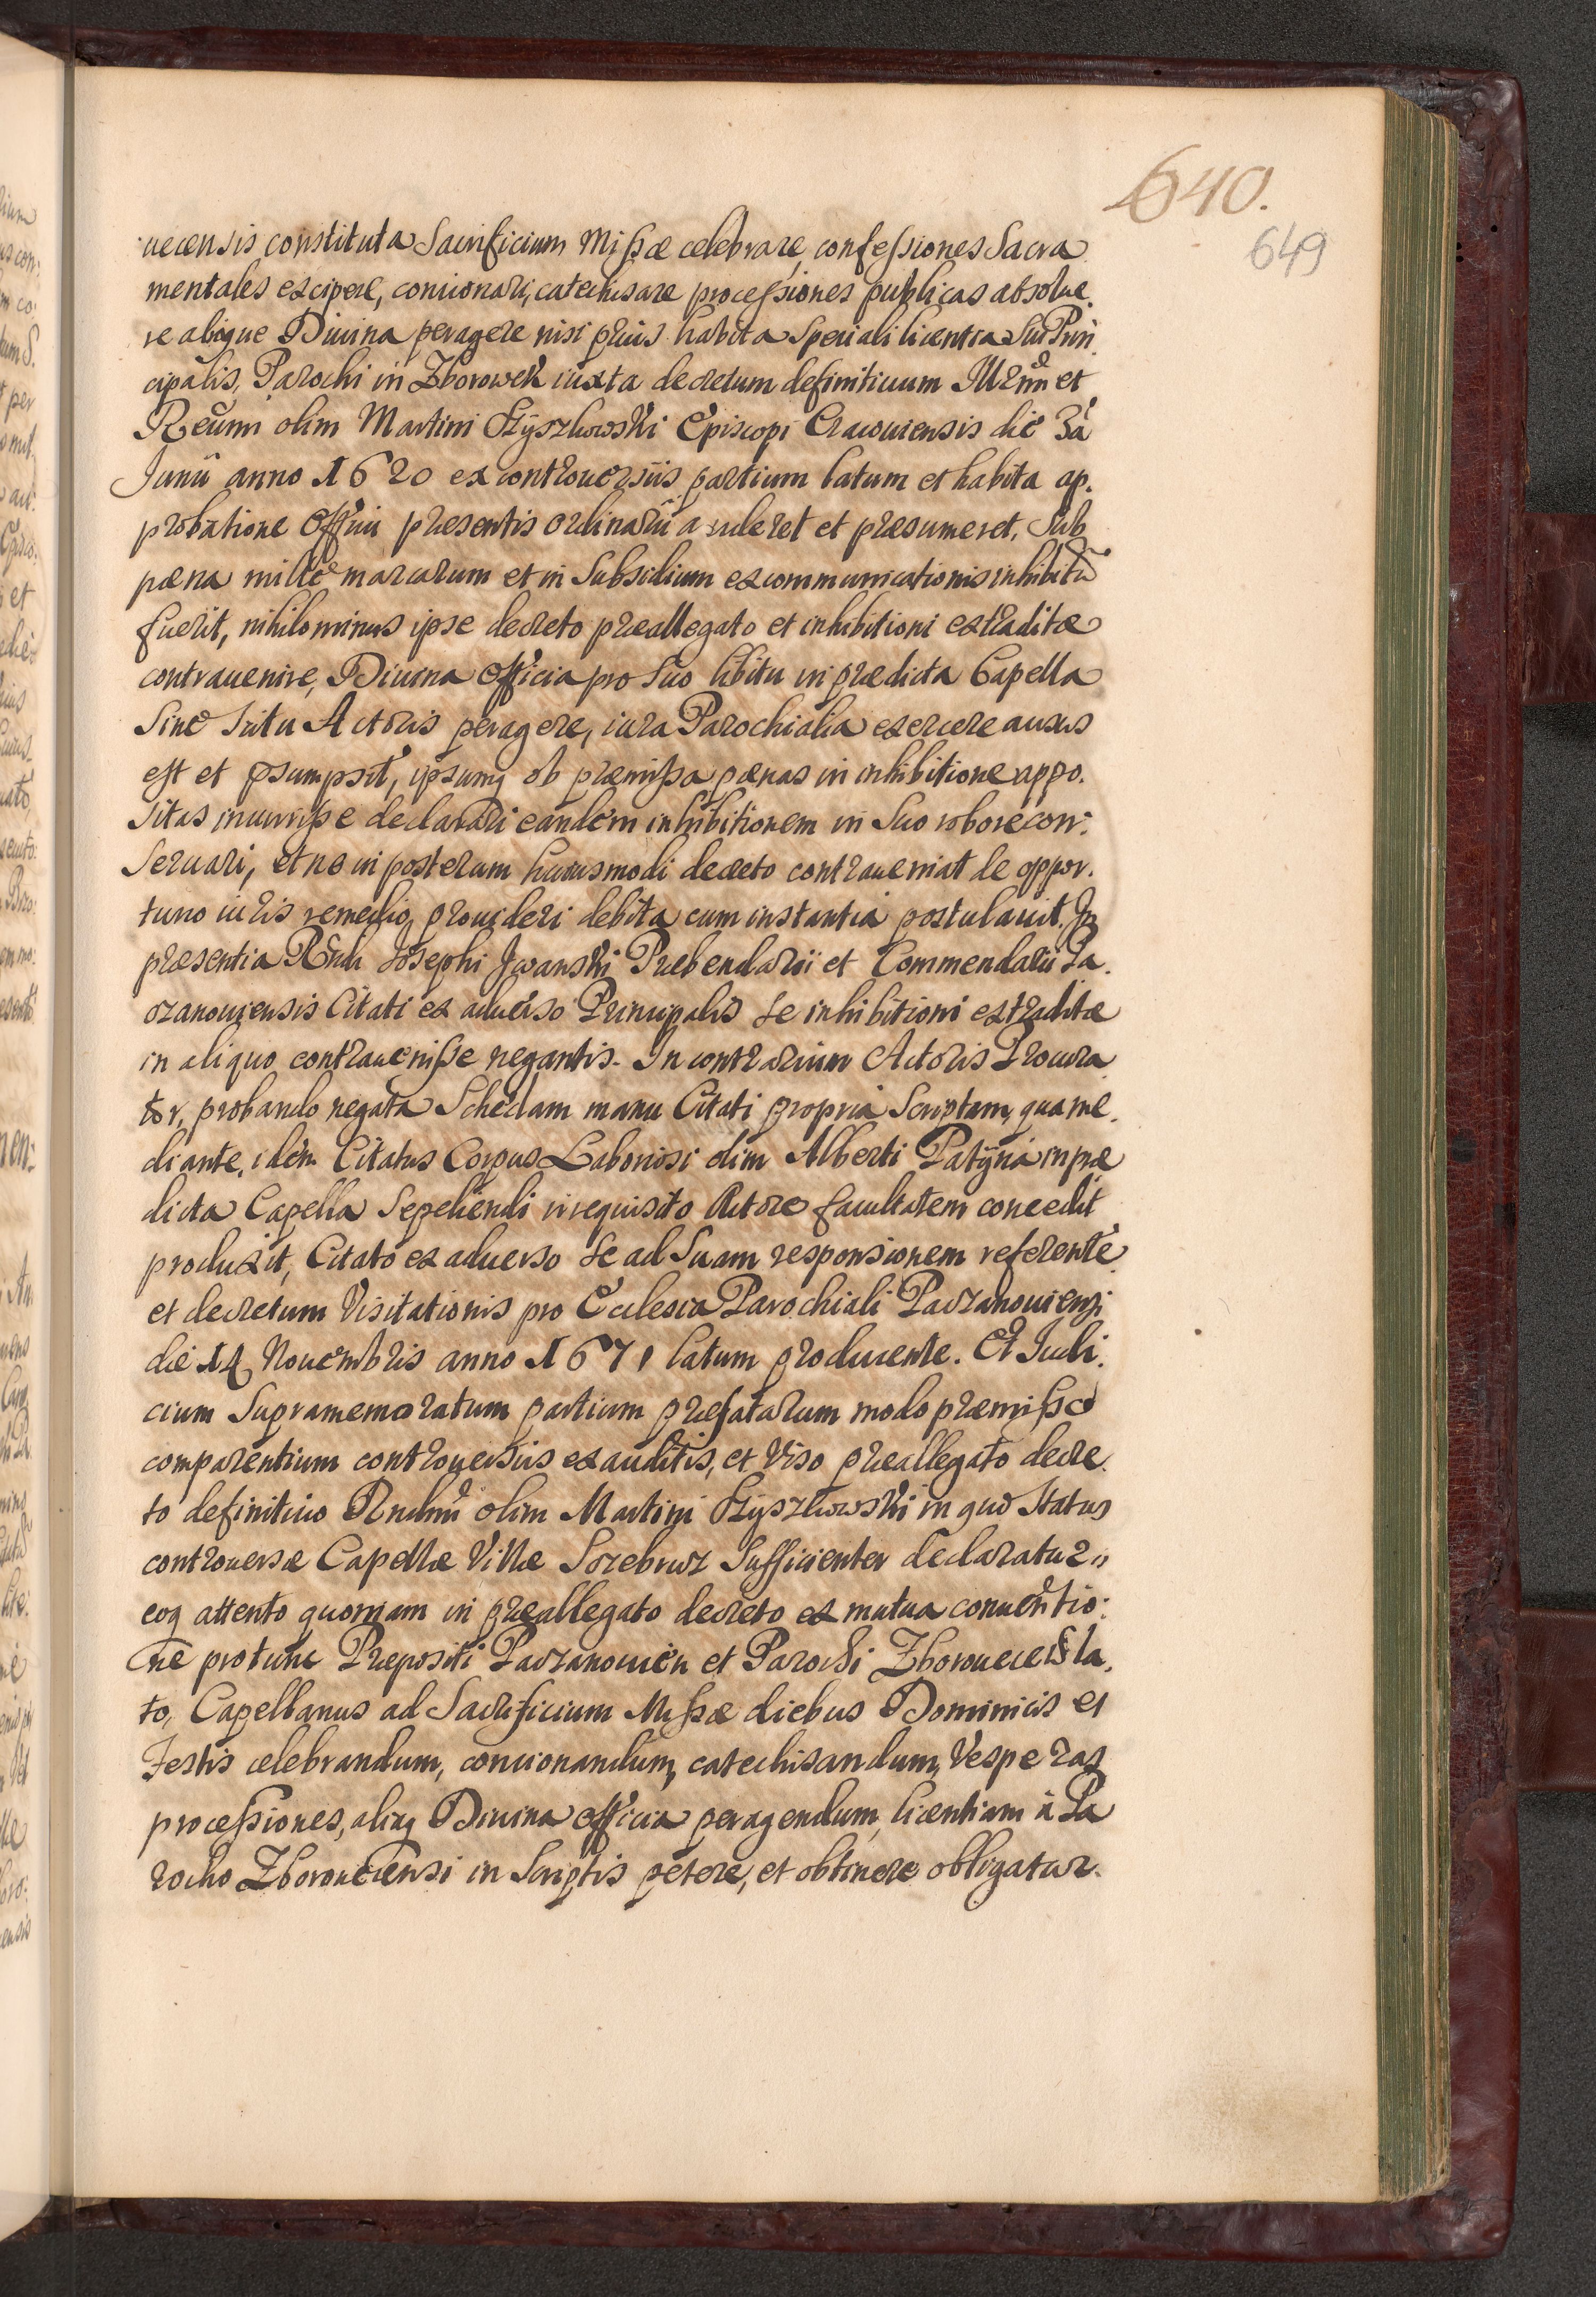 640.
649
uecensis constituta Sacrificium Missæ celebrare, confessiones Sacra
mentales excipere, concionari, catechisare processiones publicas absolue.
re aliaque Diuina peragere nisi prius habita Speciali licentia Sui Prin
cipalis, Parochi in Zborowek iuxta decretum definitiuum Illrmi et
Reumi olim Martini Szyszkowski Episcopi Cracouiensis die 3a
Junii anno 1620 ex controuersiis partium latum et habita ap.
probatione Officii præsentis ordinarii auderet et præsumeret, Sub
pæna mille marcarum et in Subsidium excommunicationis inhibitũ
fuerit, nihilominus ipse decreto præallegato et inhibitioni extraditæ
contrauenire, Diuina officia pro Suo libitu in prædicta Capella
Sine Scitu Actoris peragere, iura Parochialia exercere ausus
est et psumpsit, ipsumq ob præmissa pænas in inhibitione appo.
Sitas incurrisse declarari eandem inhibitionem in Suo robore con:
Seruari, et ne in posterum huiusmodi decreto contraueniat de oppor.
tuno iuris remedio, prouideri debita cum instantia postulauit. In
præsentia Rndi Josephi Jwanski Præbendarii et Commendarii Pa.
czanouiensis Citati ex aduerso Principalis Se inhibitioni extraditæ
in aliquo contrauenisse negantis. In contrarium Actoris Procura
tor, probando negata Schedam manu Citati propria Scriptam, qua me.
diante, idem Citatus Corpus Laboriosi olim Alberti Patyna in præ
dicta Capella Sepeliendi irrequisito Actore facultatem concedit
produxit, Citato ex aduerso Se ad Suam responsionem referente
et decretum Visitationis pro Ecclesia Parochiali Paczanouiensi
die 14 Nouembris anno 1671 latum producente. Et Iudi.
cium Supramemoratum partium præfatarum modo præmisso
comparentium controuersiis exauditis, et Viso præallegato decre.
to definitiuo Rndmi olim Martini Szyszkowski in quo Status
controuersæ Capellæ Villæ Sufficienter declaratur,
eoq attento quoniam in præallegato decreto ex mutua conuentio:
ne protunc Præpositi Paczanouien et Parochi Zborouecen la.
to, Capellanus ad Sacrificium Missæ diebus Dominicis et
Festis celebrandum, concionandum, catechisandum, Vesperas
processiones, aliaq Diuina officia peragendum, licentiam à Pa
rocho Zborouecensi in Scriptis petere, et obtinere obligatur.